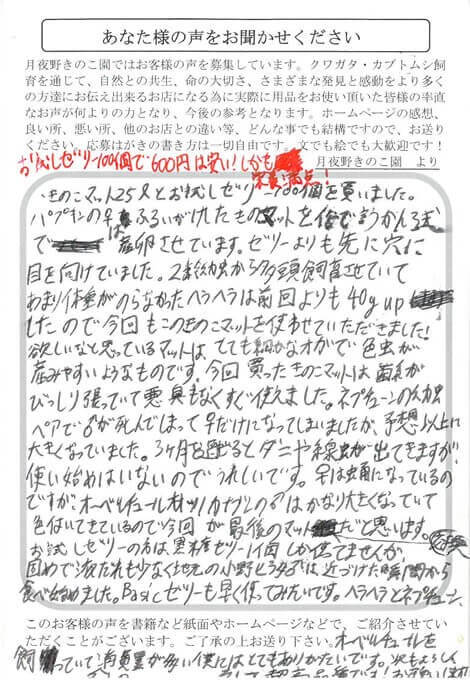 あなた様の声をお聞かせください
月夜野きのこ園ではお客様の声を募集しています。クワガタ・カブトムシ飼
育を通じて、自然との共生、命の大切さ、さまざまな発見と感動をより多く
の方達にお伝え出来るお店になる為に実際に用品をお使い頂いた皆様の率直
なお声が何よりの力となり、今後の参考となります。ホームページの感想、
良い所、悪い所、他のお店との違い等、どんな事でも結構ですので、お送り
ください。応募はがきの書き方は一切自由です。文でも絵でも大歓迎です!
月夜野きのこ園 より
お試しゼリー100個で600円は安い!しかも
栄養満点!
きのこマット25ℓとお試しゼリー100個を買いました。
の♀はふるいがけしたものマットを
で産卵させています。ゼリーよりも先に穴に
目を向けていました。2令幼虫から多頭飼育させていて
あまり体重がのらなかったヘラヘラは前回よりも40g up
したので今回もこのきのこマットを使わせていただきました!
欲しいなと思っているマットは、とても細かなオガで色虫が
産みやすいようなものです。今回買ったきのこマットは菌糸が
びっしり張っていて悪臭もなくすぐ使えました。ネプチューンの幼虫
ペアで♂が死んでしまって♀だけになってしまいましたが、予想以上に
大きくなっていました。3ヶ月も過ぎるとダニや線虫が出てきますが、
使い始めはいないのでうれしいです。♀は蛹になっているの
ですが、オーベルチュールオオツノカナブンの♂はかなり大きくなっていて
色付いてきているので今回が最後のマットだと思います。
お試しゼリーの方は黒糖ゼリー1個しか使てませんが、
固めで液だれも少なく地元の小野ヒラタ は近づけた瞬間から
食べ始めました。Basicゼリーも早く使ってみたいです。ヘラヘラとネプチューン、
このお客様の声を書籍など紙面やホームページなどで、ご紹介させてい
ただくことがございます。ご了承の上お送り下さい。オーベルチュールを
飼っていて消費量が多い僕にはとてもありがたいです。次もよろしく